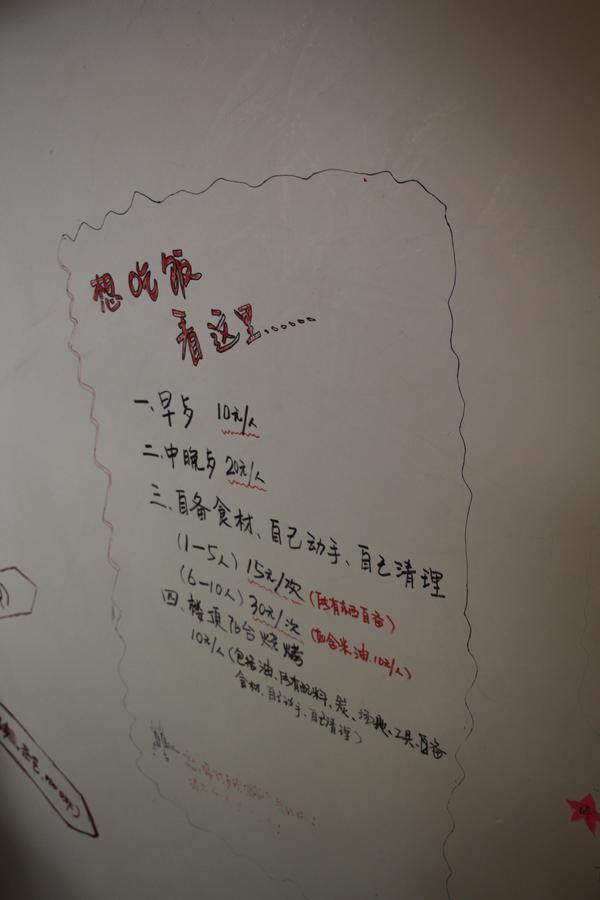 想吃饭
看这里......
一、早歺 10元/人
二、中晚歺 20元/人
三、自备食材、自己动手、自己清理
(1-5人) 15元/次 (所有东西自备)
(6-10人) 30元/次 (如含米.油.10元/人)
四、楼顶阳台烧烤
10元/人(包括油、所有配料、炭、场地、工具、自备
食材、自己动手、自己清理)